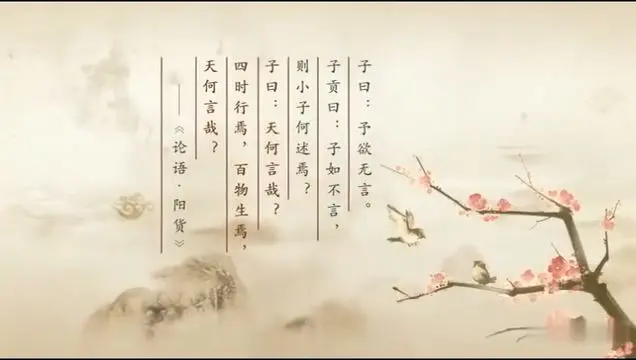 子曰：予欲无言。
子贡曰：子如不言，
则小子何述焉？
子曰：天何言哉？
四时行焉，百物生焉，
天何言哉？
——《论语·阳货》